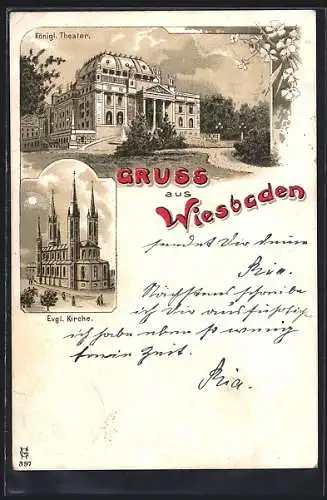 Königl. Theater.
GRUSS
aus
Wiesbaden
Evgl. Kirche.
sendet Dir deine
Ria.
Nächstens schreibe
ich Dir ausführlich
ich habe eben so wenig
Zeit.
Ria.
397